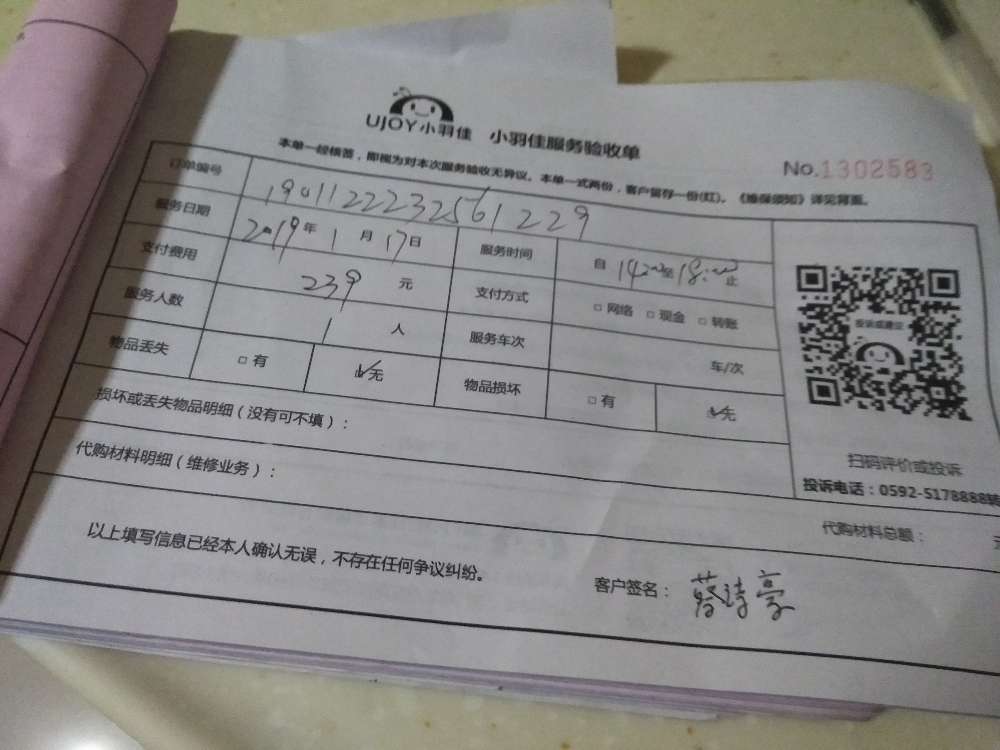 UJOY小羽佳 小羽佳服务验收单
No.1302583
本单一经核签，即视为对本次服务验收无异议。本单一式两份，客户留存一份(红)。《维保须知》详见背面。
订单编号 1901122232561229
服务日期 2019年1月17日 服务时间 自14:00至18:00止
支付费用 239元 支付方式 □网络 □现金 □转账
服务人数 1人 服务车次 车/次
物品丢失 □有 ☑无 物品损坏 □有 ☑无
投诉或建议
扫码评价或投诉
投诉电话：0592-5178888转
损坏或丢失物品明细（没有可不填）：
代购材料明细（维修业务）：
代购材料总额：
以上填写信息已经本人确认无误，不存在任何争议纠纷。
客户签名：蔡诗豪